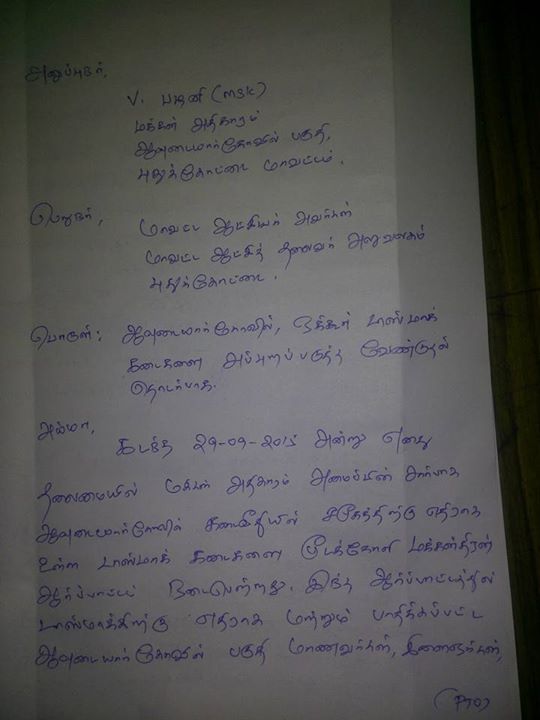 அனுப்புநர்,
V. பழனி (msk)
மக்கள் அதிகாரம்
ஆவுடையார்கோவில் பகுதி.
புதுக்கோட்டை மாவட்டம்.
பெறுநர்,
மாவட்ட ஆட்சியர் அவர்கள்
மாவட்ட ஆட்சித் தலைவர் அலுவலகம்
புதுக்கோட்டை.
பொருள்: ஆவுடையார்கோவில், ஒக்கூர் டாஸ்மாக்
கடைகளை அப்புறப்படுத்த வேண்டுதல்
தொடர்பாக.
அம்மா,
கடந்த 29-09-2015 அன்று எனது
தலைமையில் மக்கள் அதிகாரம் அமைப்பின் சார்பாக
ஆவுடையார்கோவில் கடைவீதியில் எதிராக
உள்ள டாஸ்மாக் கடைகளை மக்கள்திரள்
ஆர்ப்பாட்டம் நடைபெற்றது. இந்த ஆர்ப்பாட்டத்தில்
டாஸ்மாக்கிற்கு எதிராக மற்றும் பாதிக்கப்பட்ட
ஆவுடையார்கோவில் பகுதி மாணவர்கள், இளைஞர்கள்,
(PTO)